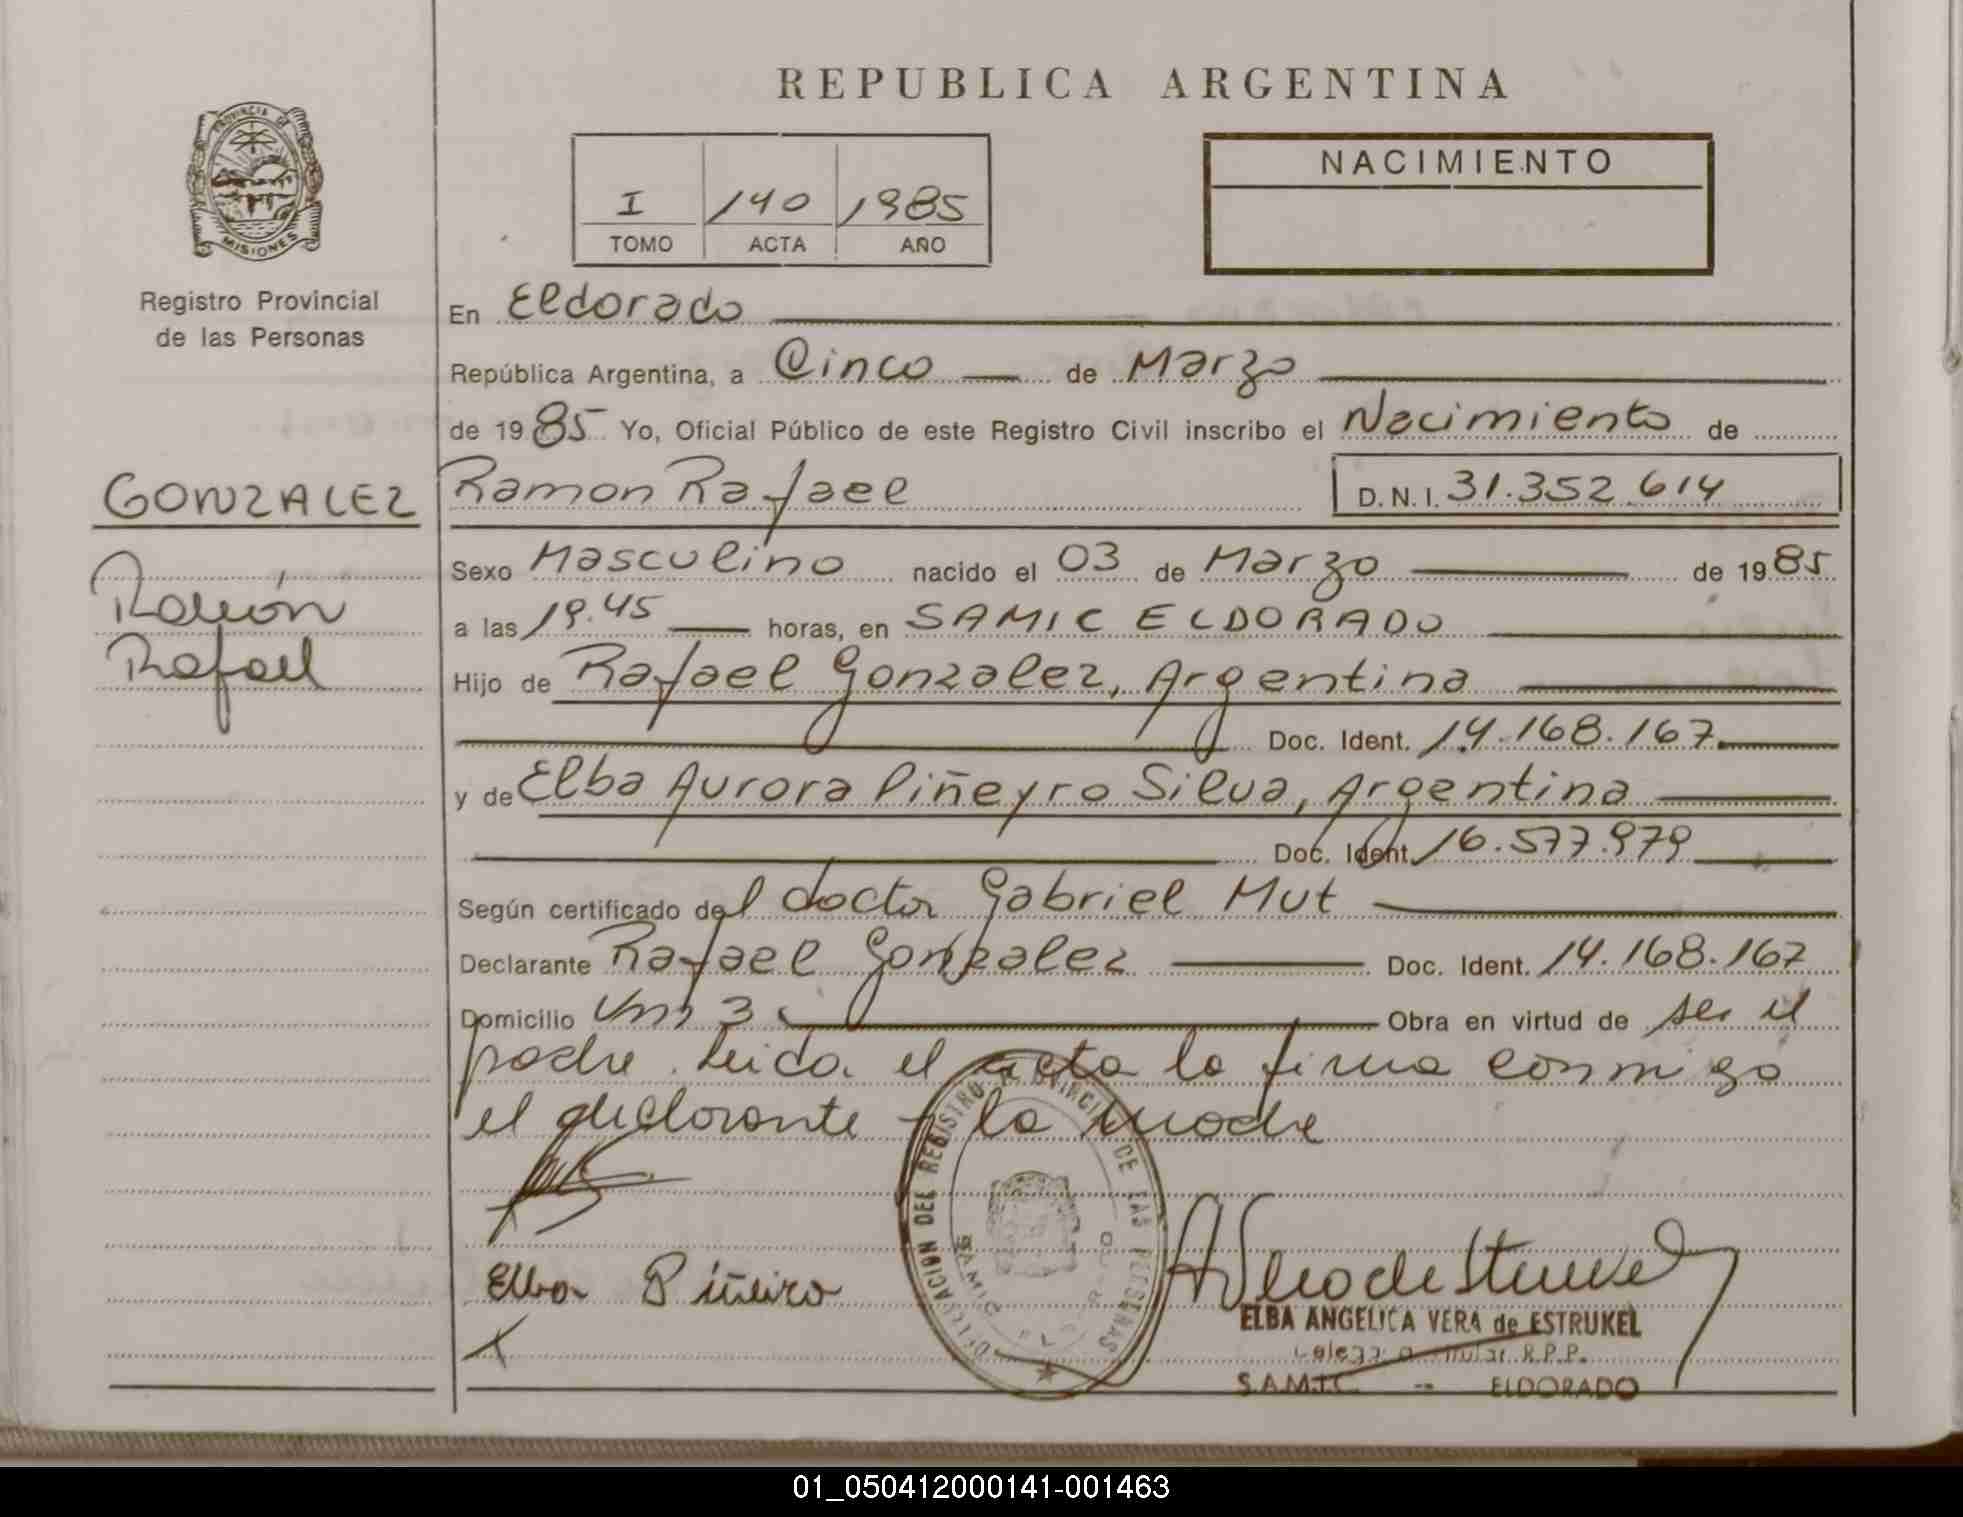 REPUBLICA ARGENTINA
PROVINCIA DE
MISIONES
Registro Provincial
de las Personas
I 140 1985
TOMO ACTA AÑO
NACIMIENTO
En Eldorado
República Argentina, a Cinco de Marzo
de 1985 Yo, Oficial Público de este Registro Civil inscribo el Nacimiento de
GONZALEZ
Ramón
Rafael
Ramon Rafael D.N.I. 31.352.614
Sexo Masculino nacido el 03 de Marzo de 1985
a las 19.45 horas, en SAMIC ELDORADO
Hijo de Rafael Gonzalez, Argentina
Doc. Ident. 14.168.167
y de Elba Aurora Piñeyro Silva, Argentina
Doc. Ident. 16.577.979
Según certificado del doctor Gabriel Mut
Declarante Rafael Gonzalez Doc. Ident. 14.168.167
Domicilio Km 3 Obra en virtud de ser el
padre. Leida el acta la firma conmigo
el declarante y la madre
DELEGACION DEL REGISTRO PROVINCIAL DE LAS PERSONAS
SAMIC ELDORADO
Elba Piñeiro
ELBA ANGELICA VERA de ESTRUKEL
Delegada Titular R.P.P.
S.A.M.I.C. -- ELDORADO
01_050412000141-001463